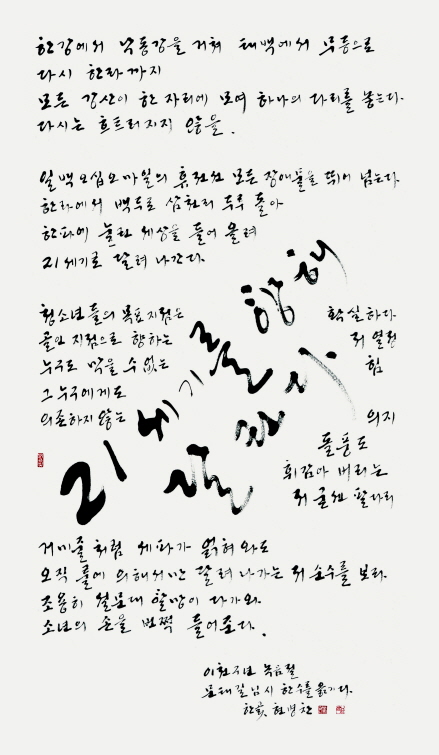 한강에서 낙동강을 거쳐 태백에서 무등으로
다시 한라까지
모든 강산이 한 자리에 모여 하나의 다리를 놓는다.
다시는 흐트러지지 않을.
일백오십오마일의 휴전선 모든 장애물을 뛰어 넘는다
한라에서 백두로 삼천리 두루 돌아
한파에 눌린 세상을 들어 올려
21세기로 달려 나간다.
청소년들의 목표지점은
골인 지점으로 향하는
누구도 막을 수 없는
그 누구에게도
의존하지 않는
21세기를 향해
달린다
확실하다
저 열린
힘
의지
돌풍도
휘감아 버리는
저 굵은 팔다리
거미줄처럼 세파가 얽혀와도
오직 룰에 의해서만 달려 나가는 저 순수를 보라.
조용히 설문대 할망이 다가와
소년의 손을 번쩍 들어준다.
이천지년 녹음절
문태길님 시 한수를 옮기다.
한글 현병찬